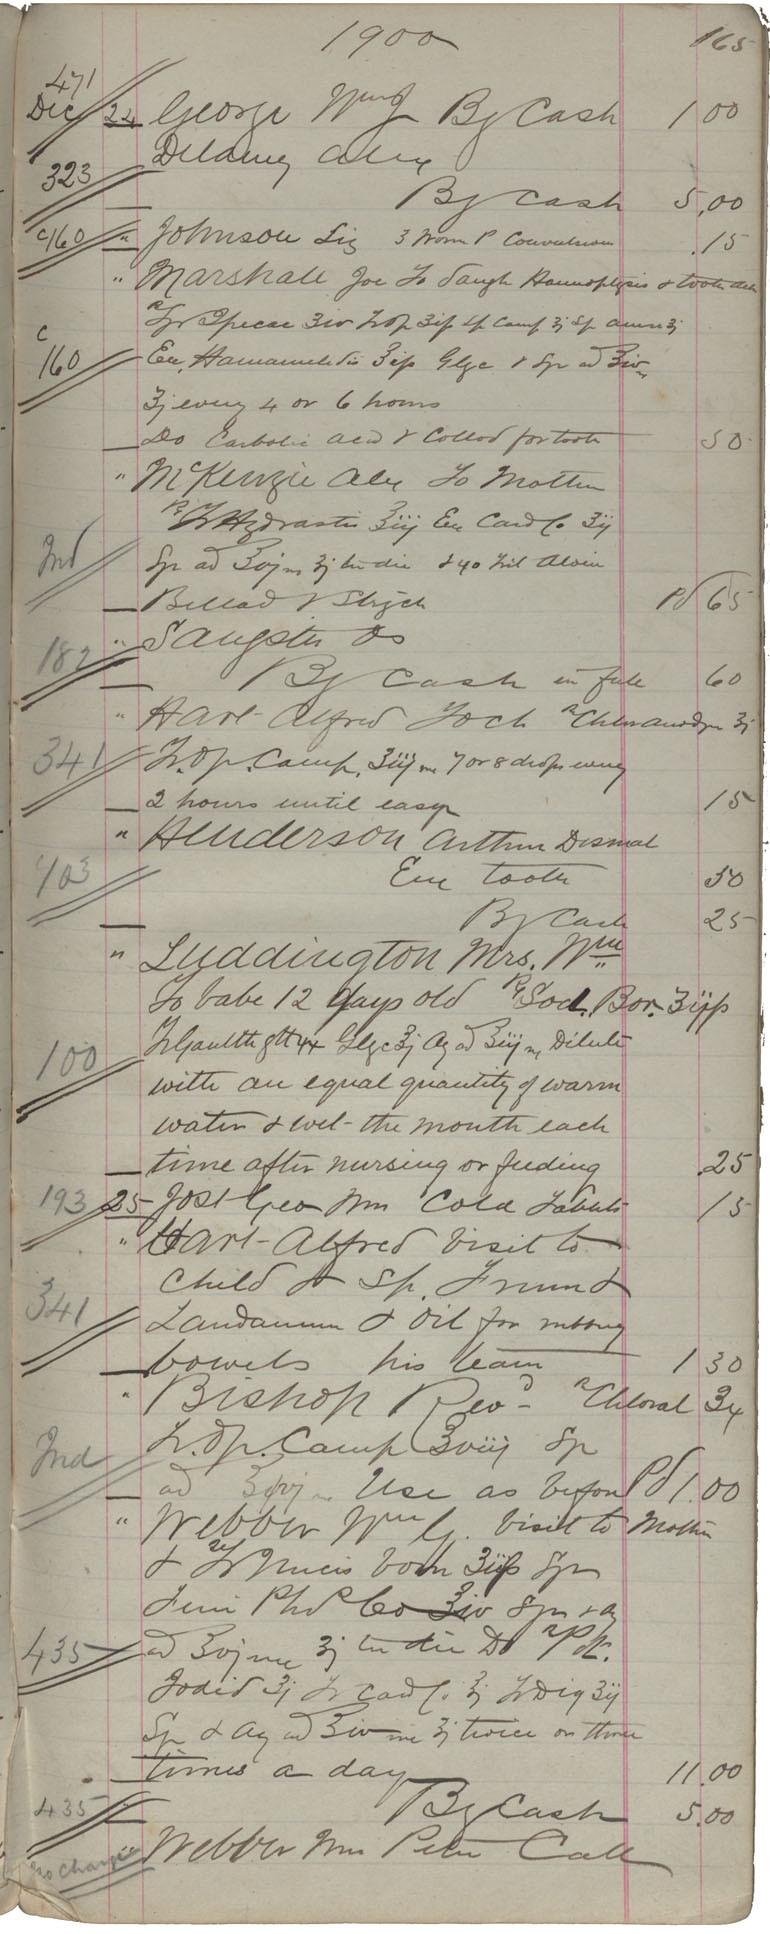 1900 165
471
Dec 24 George Wm J By Cash 1 00
Delaney Alex
323
By Cash 5,00
c160 " Johnson Liz 3 Worm P Convulsion .15
" Marshall Joe To daugh Haemoptysis & tooth ache
℞ Tr Ipecac ʒiv Tr Op ʒiſs Sp Camp ʒj Sp amm ʒj
c
160 Ext. Hamamelidis ʒiſs Glyc & Syr ad ℥iv m
ʒj every 4 or 6 hours
Do Carbolic acid & Collod for tooth 50
" McKenzie Alex To Mother
℞ Tr Hydrastis ʒiij Ext Card Co ʒij
Ind Syr ad ℥vj m ʒj ter die & 40 Pil Aloin
Bellad & Strych Pd 65
182 " Sangster Os
By Cash in full 60
" Hart Alfred To ch ℞ Chloranodyn ʒj
341 Tr. Op. Camp. ʒiij m 7 or 8 drops every
2 hours until easy 15
" Henderson Arthur Dismal
403 Ext tooth 50
By Cash 25
" Luddington Mrs. Wm
To babe 12 days old ℞ Sod. Bor. ʒijſs
100 Tr Gaulth gtt xx Glyc ʒj Aq ad ℥iij m Dilute
with an equal quantity of warm
water & wet the mouth each
time after nursing or feeding .25
193 25 Jost Geo Wm Cold Tablets 15
" Hart Alfred Visit to
Child & Sp. Frum &
341 Laudanum & Oil for rubbing
bowels his team 1 30
" Bishop Revd - ℞ Chloral ʒx
Ind Tr. Op. Camp ʒviij Sp
ad ℥vj m Use as before Pd 1.00
" Webber Wm G. Visit to Mother
& ℞ Tr Nucis Vom ʒiiſs Syr
Ferri Phos Co ℥iv Syr & aq
435 ad ℥vj m ʒj ter die Do ℞ Pot.
Iodid ʒj Tr Card Co ʒj Tr Dig ʒij
Sp & Aq ad ℥iv m ʒj twice or three
times a day 11.00
435 " By Cash 5.00
no charge " Webber Wm Peter Call